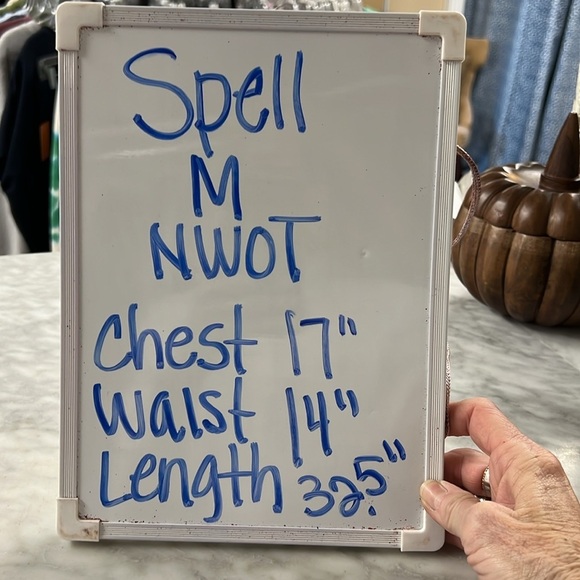 Spell
M
NWOT
Chest 17"
Waist 14"
Length 32.5"